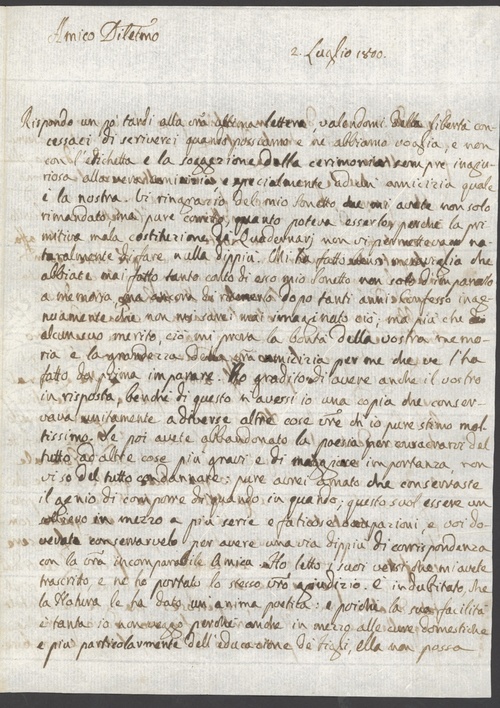 Amico Diletmo
2. Luglio 1800.
Rispondo un po tardi alla vra ultima lettera, valendomi della libertà con
cessaci di scriverci quando possiamo e ne abbiamo voglia, e non
con l'etichetta e la soggezione della cerimonia sempre ingiu
riosa alla vera amicizia e specialmente ad un amicizia quale
è la nostra. Vi ringrazio del mio sonetto che mi avete non solo
rimandato, ma pure corretto quanto poteva esserlo, perché la pri
mitiva mala costituzione de' Quadernarj non vi permetteva na
turalmente di fare nulla dippiù. Mi ha fatto meraviglia che
abbiate mai fatto tanto caso di esso mio sonetto non solo di impararlo
a memoria, ma ancora di ritenerlo dopo tanti anni. Confesso inge
nuamente che non mi sarei mai immaginato ciò; ma più che
alcun suo merito, ciò mi prova la bontà della vostra memo
ria e la grandezza della amicizia per me che ve l'ha
fatto da prima imparare. Ho gradito di avere anche il vostro
in risposta, benché di questo n'avessi io una copia che conser
vava unitamente a diverse altre cose vre ch'io pure stimo mol
tissimo. Se poi avete abbandonato la poesia per
tutto ad altre cose più gravi e di maggiore importanza, non
vi so del tutto condannare: pure avrei amato che conservaste
il genio di comporre di quando in quando; questo suol essere un
sollievo in mezzo a più serie e faticose occupazioni, e voi do
vevate conservarvelo per avere una via dippiù di corrispondenza
con la vra incomparabile Amica. Ho letto i suoi versi che mi avete
trascritto e ne ho portato lo stesso vro giudizio. È indubitato, che
la Natura le ha dato un anima poetica: e poiché la sua facilità
è tanta io non veggo perché anche in mezzo alle cure domestiche
e più particolarmente dell'educazione de' figli, ella non possa